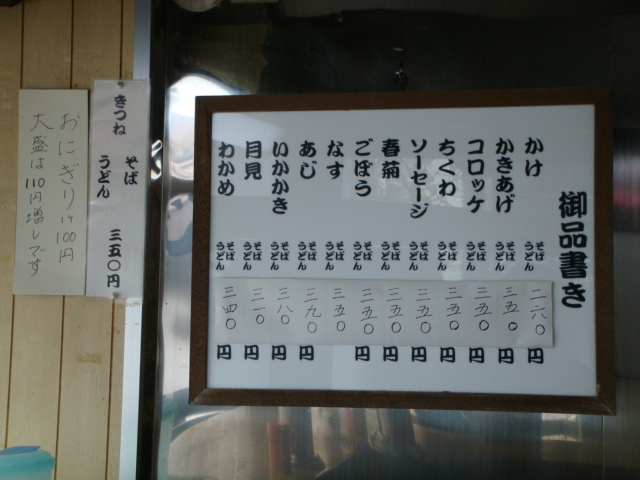 御品書き
かけ そば うどん 二六〇円
かきあげ そば うどん 三五〇円
コロッケ そば うどん 三五〇円
ちくわ そば うどん 三五〇円
ソーセージ そば うどん 三五〇円
春菊 そば うどん 三五〇円
ごぼう そば うどん 三五〇円
なす そば うどん 三五〇
あじ そば うどん 三九〇円
いかかき そば うどん 三八〇円
月見 そば うどん 三一〇円
わかめ そば うどん 三四〇円
きつね そば うどん 三五〇円
おにぎり1ヶ100円
大盛は110円増しです